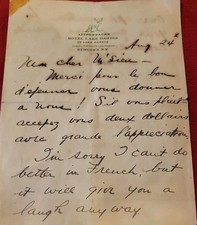 Aug 24th
Mon cher M'sieu—
Merci pour le bon
déjeuner vous donner
a nous! S'il vous plait
accepez vous deux dollars
avec grande l'appreciation.
I'm sorry I can't do
better in French, but
it will give you a
laugh anyway